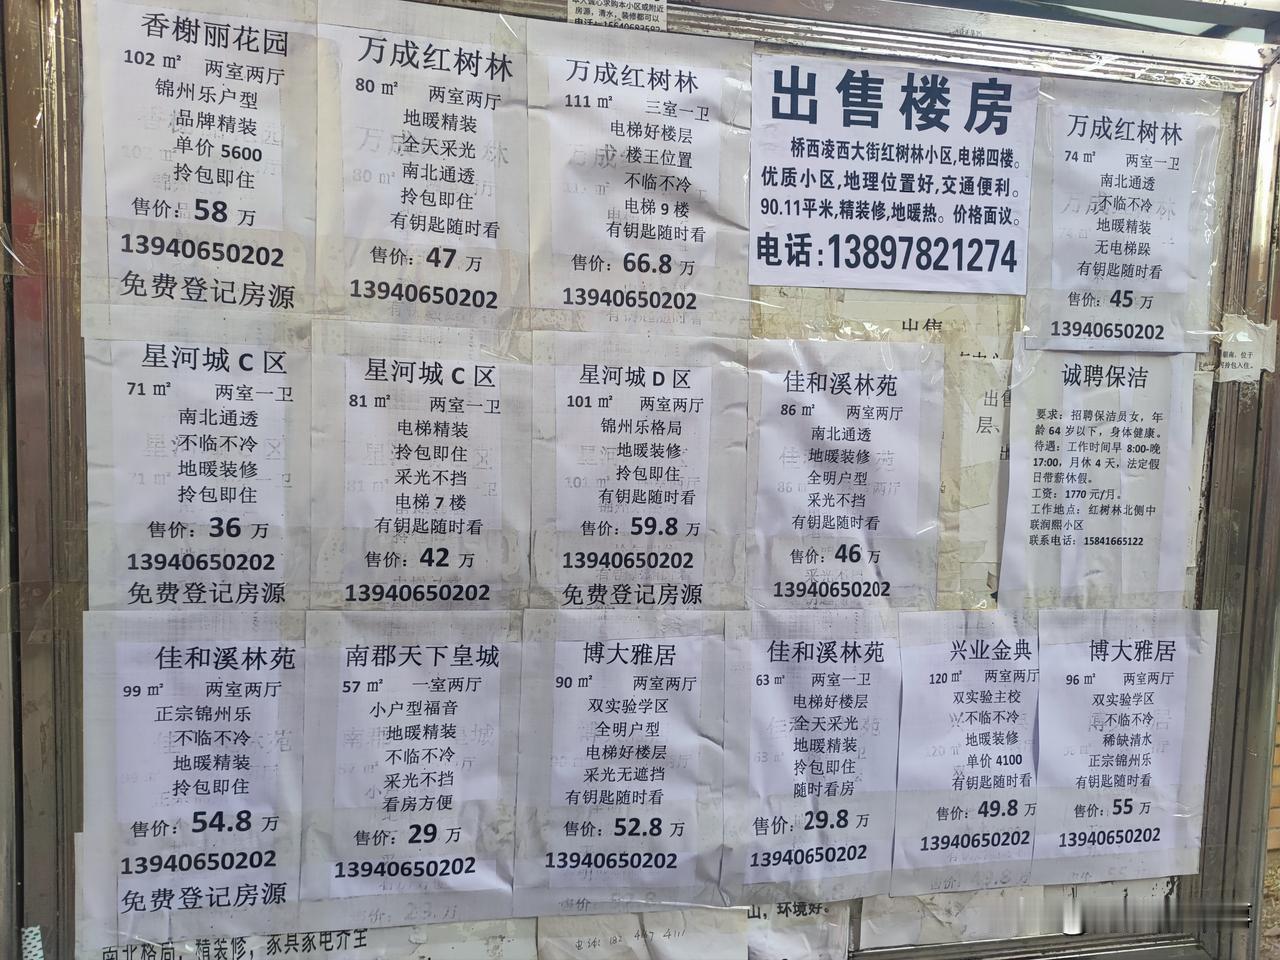 房源，清水，装修都可以
香榭丽花园
102 ㎡ 两室两厅
锦州乐户型
品牌精装
单价 5600
拎包即住
售价：58 万
13940650202
免费登记房源
万成红树林
80 ㎡ 两室两厅
地暖精装
全天采光
南北通透
拎包即住
有钥匙随时看
售价：47 万
13940650202
万成红树林
111 ㎡ 三室一卫
电梯好楼层
楼王位置
不临不冷
电梯 9 楼
有钥匙随时看
售价：66.8 万
13940650202
出售楼房
桥西凌西大街红树林小区,电梯四楼。
优质小区,地理位置好,交通便利。
90.11平米,精装修,地暖热。价格面议。
电话:13897821274
万成红树林
74 ㎡ 两室一卫
南北通透
不临不冷
地暖精装
无电梯跺
有钥匙随时看
售价：45 万
13940650202
出售
星河城 C 区
71 ㎡ 两室一卫
南北通透
不临不冷
地暖装修
拎包即住
售价：36 万
13940650202
免费登记房源
星河城 C 区
81 ㎡ 两室一卫
电梯精装
拎包即住
采光不挡
电梯 7 楼
有钥匙随时看
售价：42 万
13940650202
星河城 D 区
101 ㎡ 两室两厅
锦州乐格局
地暖装修
拎包即住
有钥匙随时看
售价：59.8 万
13940650202
免费登记房源
佳和溪林苑
86 ㎡ 两室两厅
南北通透
地暖装修
全明户型
采光不挡
有钥匙随时看
售价：46 万
13940650202
诚聘保洁
要求：招聘保洁员女，年
龄 64 岁以下，身体健康。
待遇：工作时间早 8:00-晚
17:00，月休 4 天，法定假
日带薪休假。
工资：1770 元/月。
工作地点：红树林北侧中
联润熙小区
联系电话：15841665122
佳和溪林苑
99 ㎡ 两室两厅
正宗锦州乐
不临不冷
地暖精装
拎包即住
售价：54.8 万
13940650202
免费登记房源
南郡天下皇城
57 ㎡ 一室两厅
小户型福音
地暖精装
不临不冷
采光不挡
看房方便
售价：29 万
13940650202
博大雅居
90 ㎡ 两室两厅
双实验学区
全明户型
电梯好楼层
采光无遮挡
有钥匙随时看
售价：52.8 万
13940650202
佳和溪林苑
63 ㎡ 两室一卫
电梯好楼层
全天采光
地暖精装
拎包即住
随时看房
售价：29.8 万
13940650202
兴业金典
120 ㎡ 两室两厅
双实验主校
不临不冷
地暖装修
单价 4100
有钥匙随时看
售价：49.8 万
13940650202
博大雅居
96 ㎡ 两室两厅
双实验学区
不临不冷
稀缺清水
正宗锦州乐
有钥匙随时看
售价：55 万
13940650202
南北格局，精装修，家具家电齐全
山，环境好。